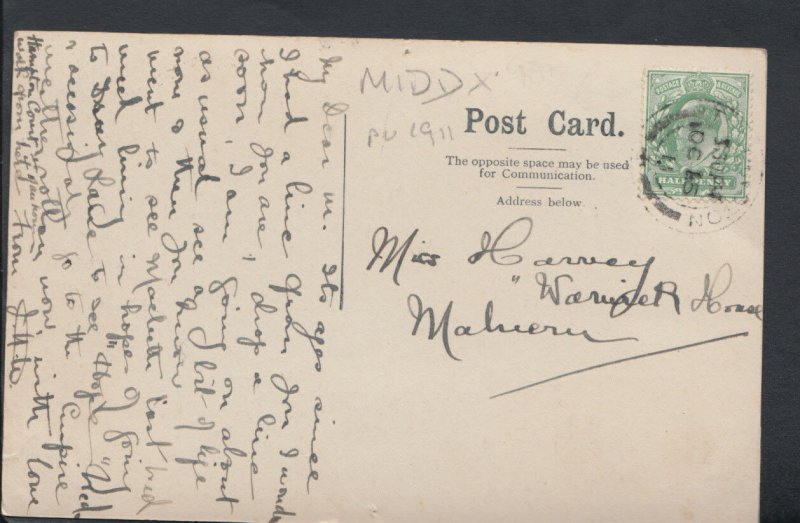 MIDDX
PU 1911
Post Card.
The opposite space may be used
for Communication.
Address below.
POSTAGE REVENUE
HALFPENNY
Miss Harvey
"Warwick House
Malvern
My Dear M. Its ages since
I had a line from you I wonder
how you are, drop a line
soon, I am going on about
as usual see a bit of life
now & then you know
went to see Macbeth last wed
week living in hopes of going
to Drury Lane to see "Hope"
go to the Empire
now, with love
from
Hampton Court
walk from